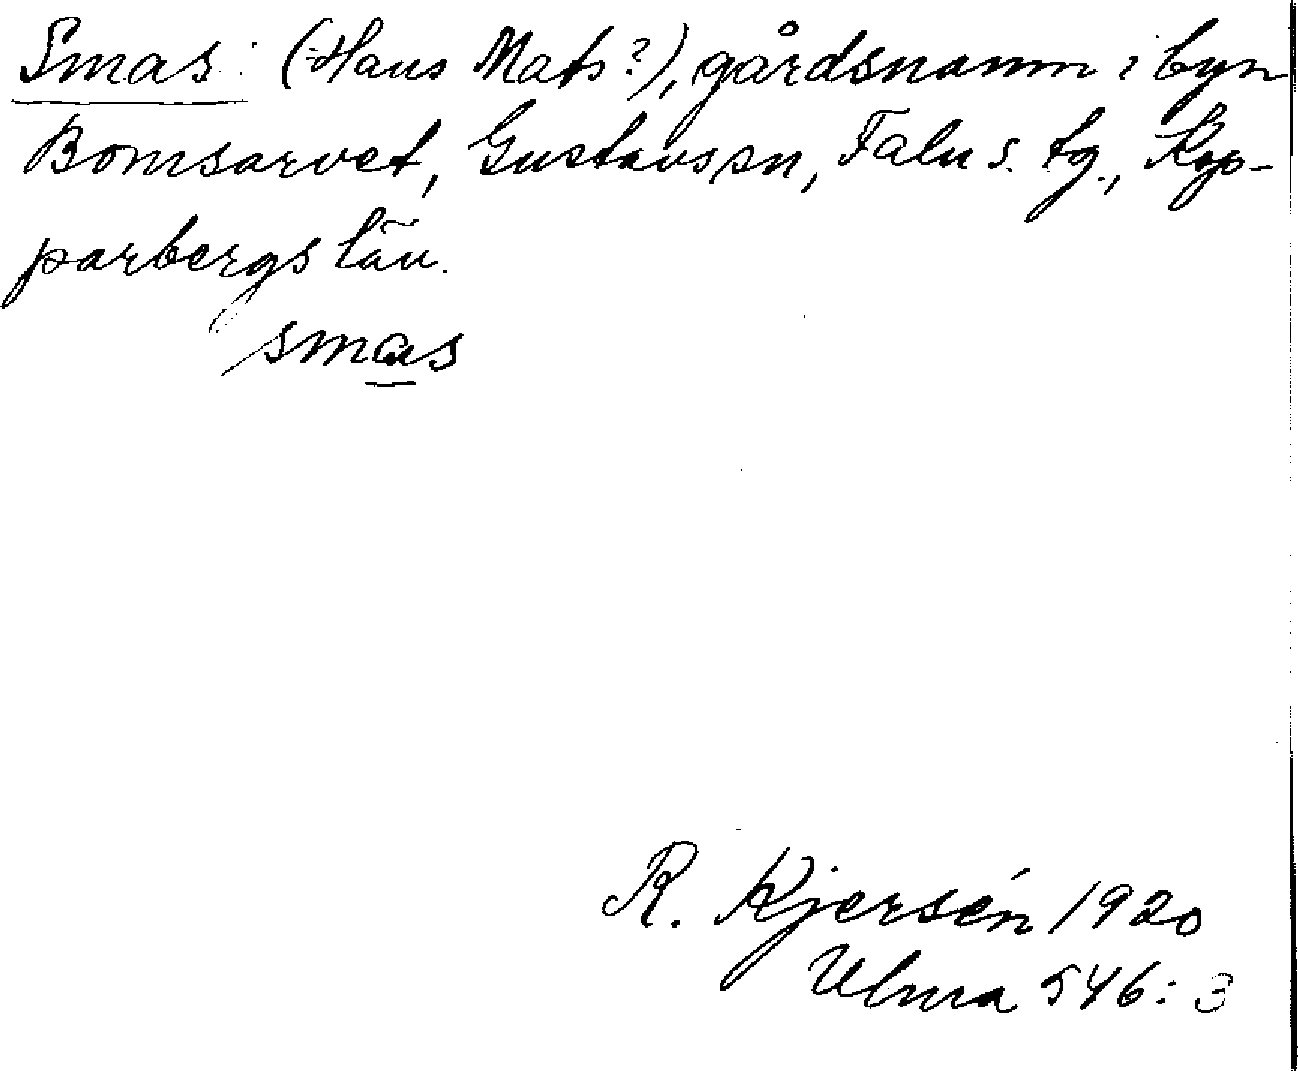 Smas: (Hans Mats?), gårdsnamn i byn
Bomsarvet, Gustavssn, Falu s. tg., Kop-
parbergs län.
smas
R. Kjersén 1920
Ulma 546:3